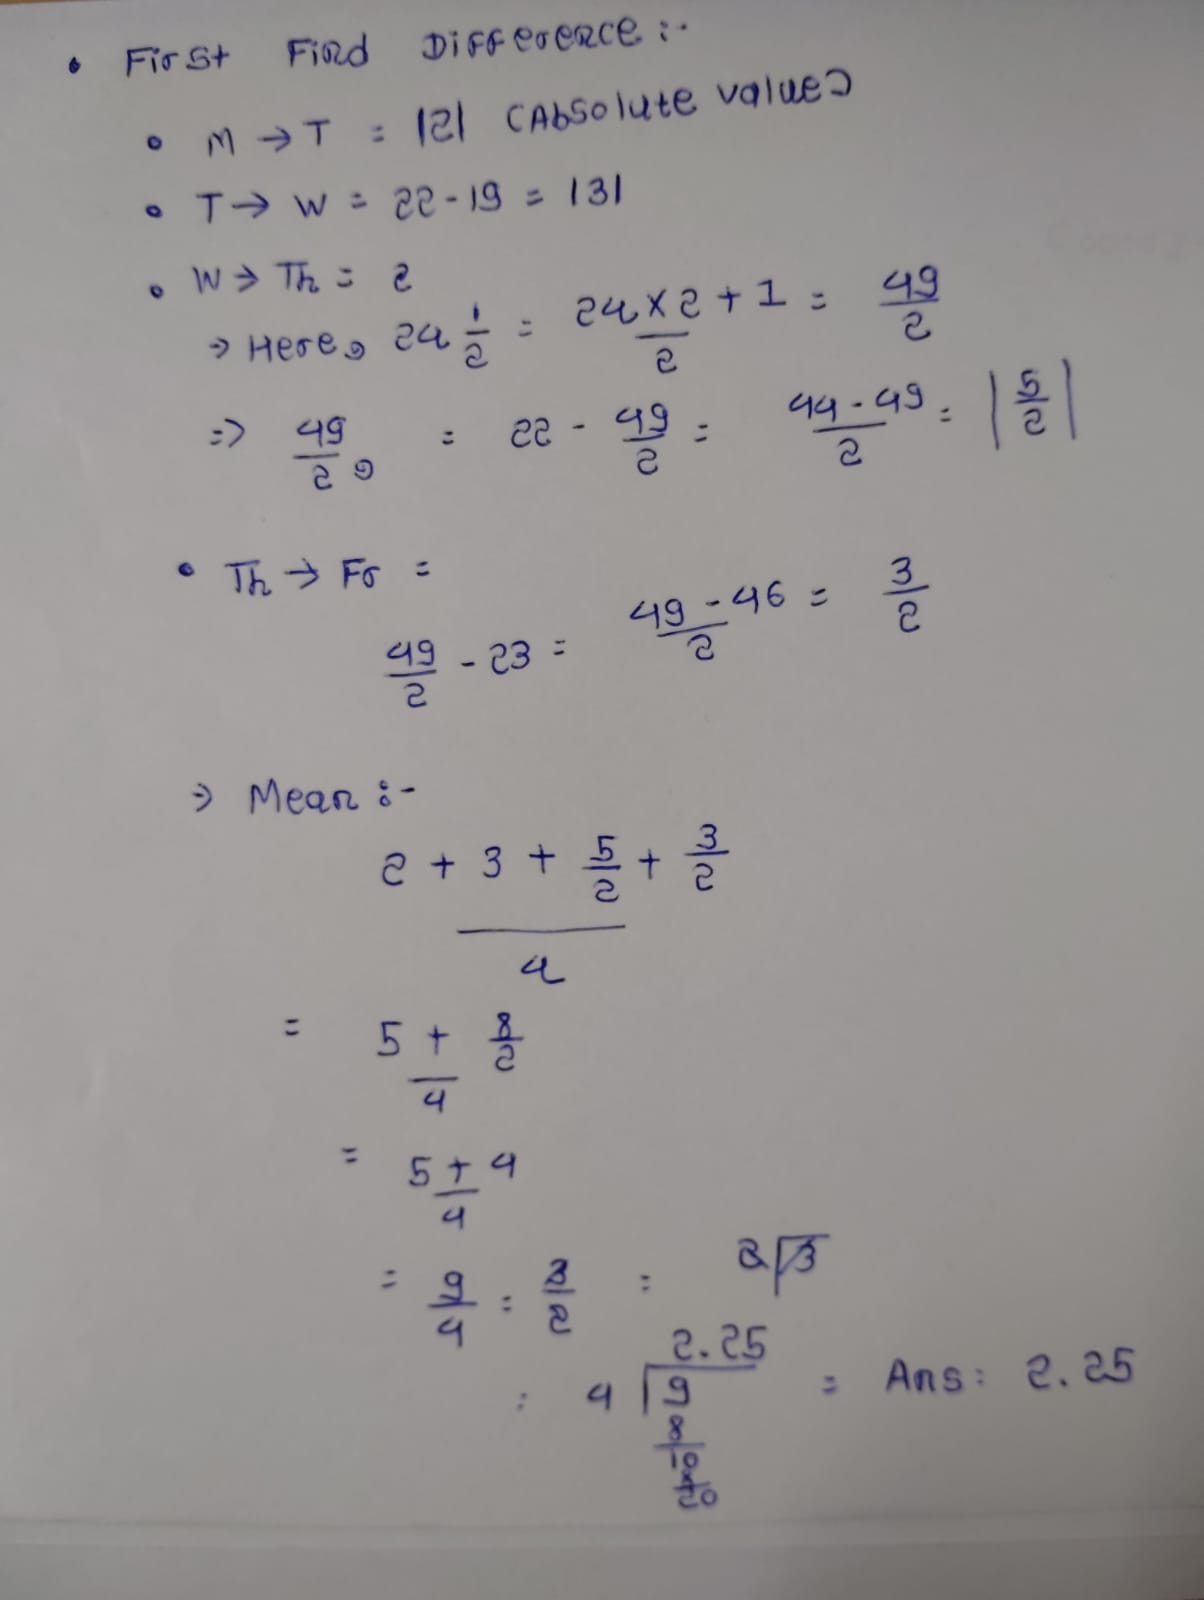 • First Find Difference :-
• M → T = |2| (Absolute value)
• T → W = 22 - 19 = |3|
• W → Th = 2
→ Here, 24 1/2 = 24 x 2 + 1 / 2 = 49/2
=> 49/2, = 22 - 49/2 = 44 - 49 / 2 = |5/2|
• Th → Fr =
49/2 - 23 = 49 - 46 / 2 = 3/2
=> Mean :-
2 + 3 + 5/2 + 3/2
4
= 5 + 8/2 / 4
= 5 + 4 / 4
= 9/4 = 3/2 = 2 √3
2.25
: 4 √9 = Ans: 2.25
8